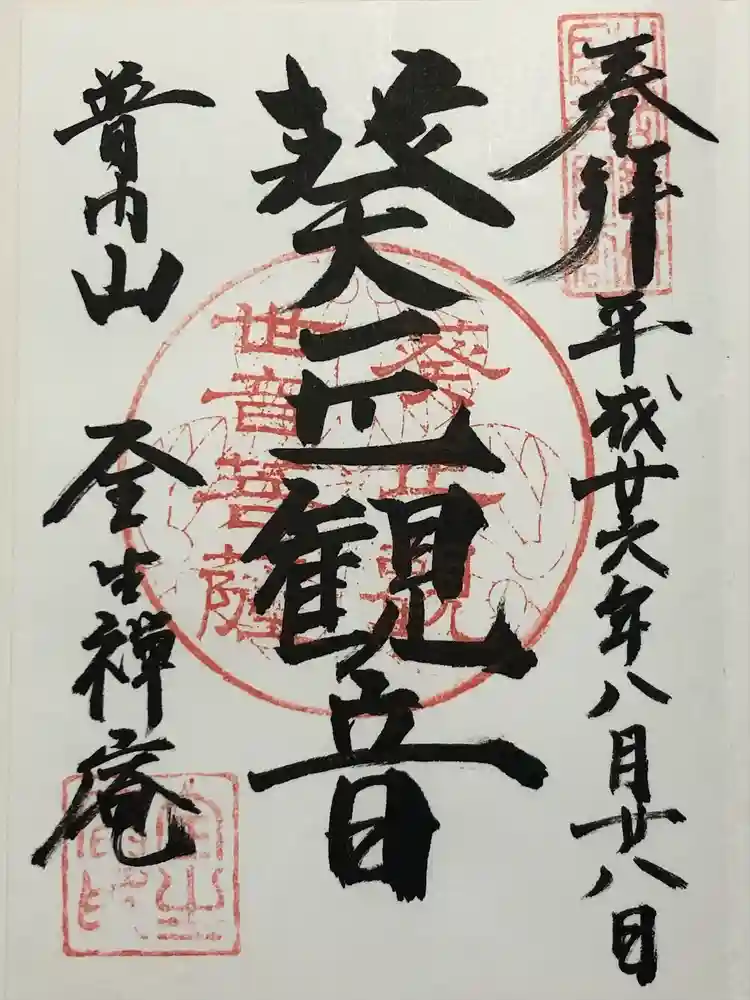 奉拝 平成廿六年八月廿八日
葵正観音
葵正観
世音菩薩
普門山 全生禅庵